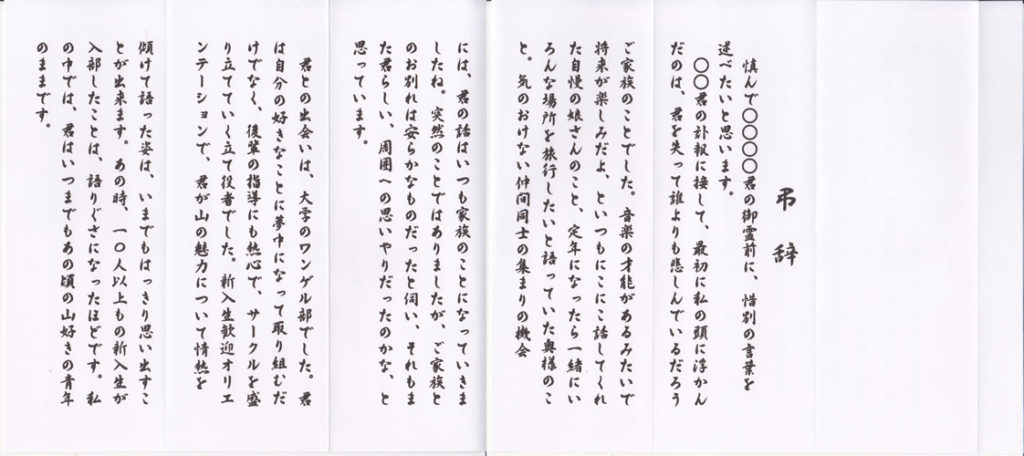 弔辞
慎んで〇〇〇〇君の御霊前に、惜別の言葉を
述べたいと思います。
〇〇君の訃報に接して、最初に私の頭に浮かん
だのは、君を失って誰よりも悲しんでいるだろう
ご家族のことでした。音楽の才能があるみたいで
将来が楽しみだよ、といつもにこにこ話してくれ
た自慢の娘さんのこと、定年になったら一緒にい
ろんな場所を旅行したいと語っていた奥様のこ
と。気のおけない仲間同士の集まりの機会
には、君の話はいつも家族のことになっていきま
したね。突然のことではありましたが、ご家族と
のお別れは安らかなものだったと伺い、それもま
た君らしい、周囲への思いやりだったのかな、と
思っています。
君との出会いは、大学のワンゲル部でした。君
は自分の好きなことに夢中になって取り組むだ
けでなく、後輩の指導にも熱心で、サークルを盛
り立てていく立て役者でした。新入生歓迎オリエ
ンテーションで、君が山の魅力について情熱を
傾けて語った姿は、いまでもはっきり思い出すこ
とが出来ます。あの時、一〇人以上もの新入生が
入部したことは、語りぐさになったほどです。私
の中では、君はいつまでもあの頃の山好きの青年
のままです。